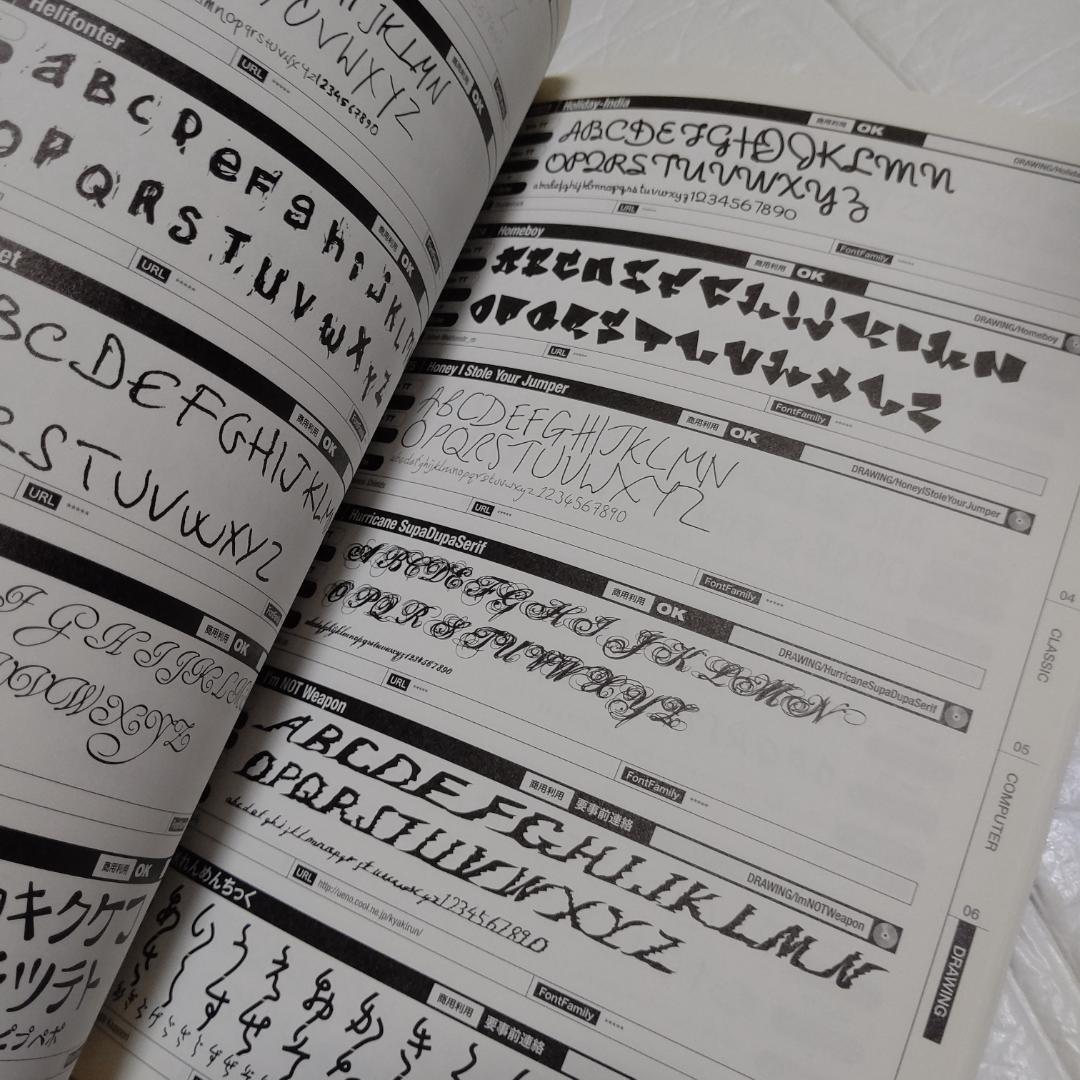 JKLMN
VWXYZ
mnopqrstuvwxyz1234567890
商用利用 OK
Helifonter
URL *****
aBCDeFghiJKL
OPQRSTUVWXYZ
商用利用 OK
URL *****
BCDEFGHIJKLM
RSTUVWXYZ
商用利用 OK
URL *****
FGHIJKLM
UVWXYZ
商用利用 OK
キクケコ
ツテト
ピプペポ
Holiday-India
商用利用 OK
ABCDEFGHIJKLMN
OPQRSTUVWXYZ
abcdefghijklmnopqrstuvwxyz1234567890
URL *****
FontFamily *****
Homeboy
商用利用 OK
DRAWING/Homeboy
ABCDEFGHIJKLMN
OPQRSTUVWXYZ
URL *****
FontFamily *****
Honey I Stole Your Jumper
商用利用 OK
DRAWING/HoneyIStoleYourJumper
ABCDEFGHIJKLMN
OPQRSTUVWXYZ
abcdefghijklmnopqrstuvwxyz1234567890
URL *****
FontFamily *****
Hurricane SupaDupaSerif
商用利用 OK
DRAWING/HurricaneSupaDupaSerif
ABCDEFGHIJKLMN
OPQRSTUVWXYZ
abcdefghijklmnopqrstuvwxyz1234567890
URL *****
FontFamily *****
I'm NOT Weapon
商用利用 要事前連絡
DRAWING/ImNOTWeapon
ABCDEFGHIJKLMN
OPQRSTUVWXYZ
abcdefghijklmnopqrstuvwxyz1234567890
URL http://ueno.cool.ne.jp/kyakirun/
FontFamily *****
れんめんちっく
商用利用 要事前連絡
04
CLASSIC
05
COMPUTER
06
DRAWING